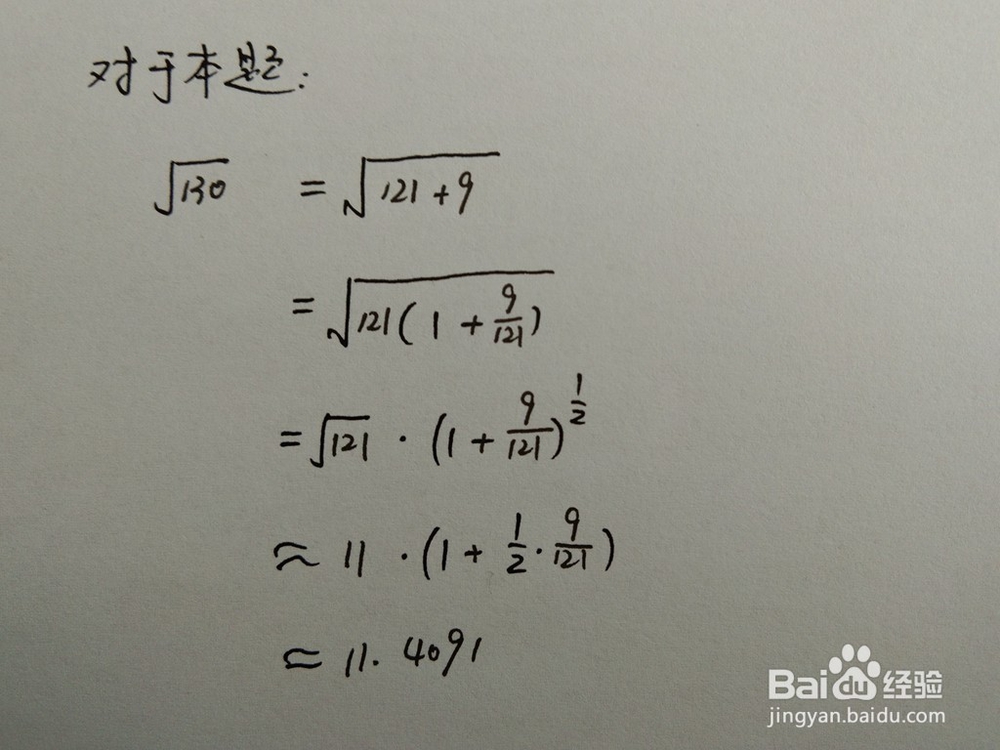 对于本题:
√130 = √(121+9)
= √(121(1+9/121))
= √121 · (1+9/121)^(1/2)
≈ 11 · (1+1/2·9/121)
≈ 11.4091
Bai du 经验
jingyan.baidu.com